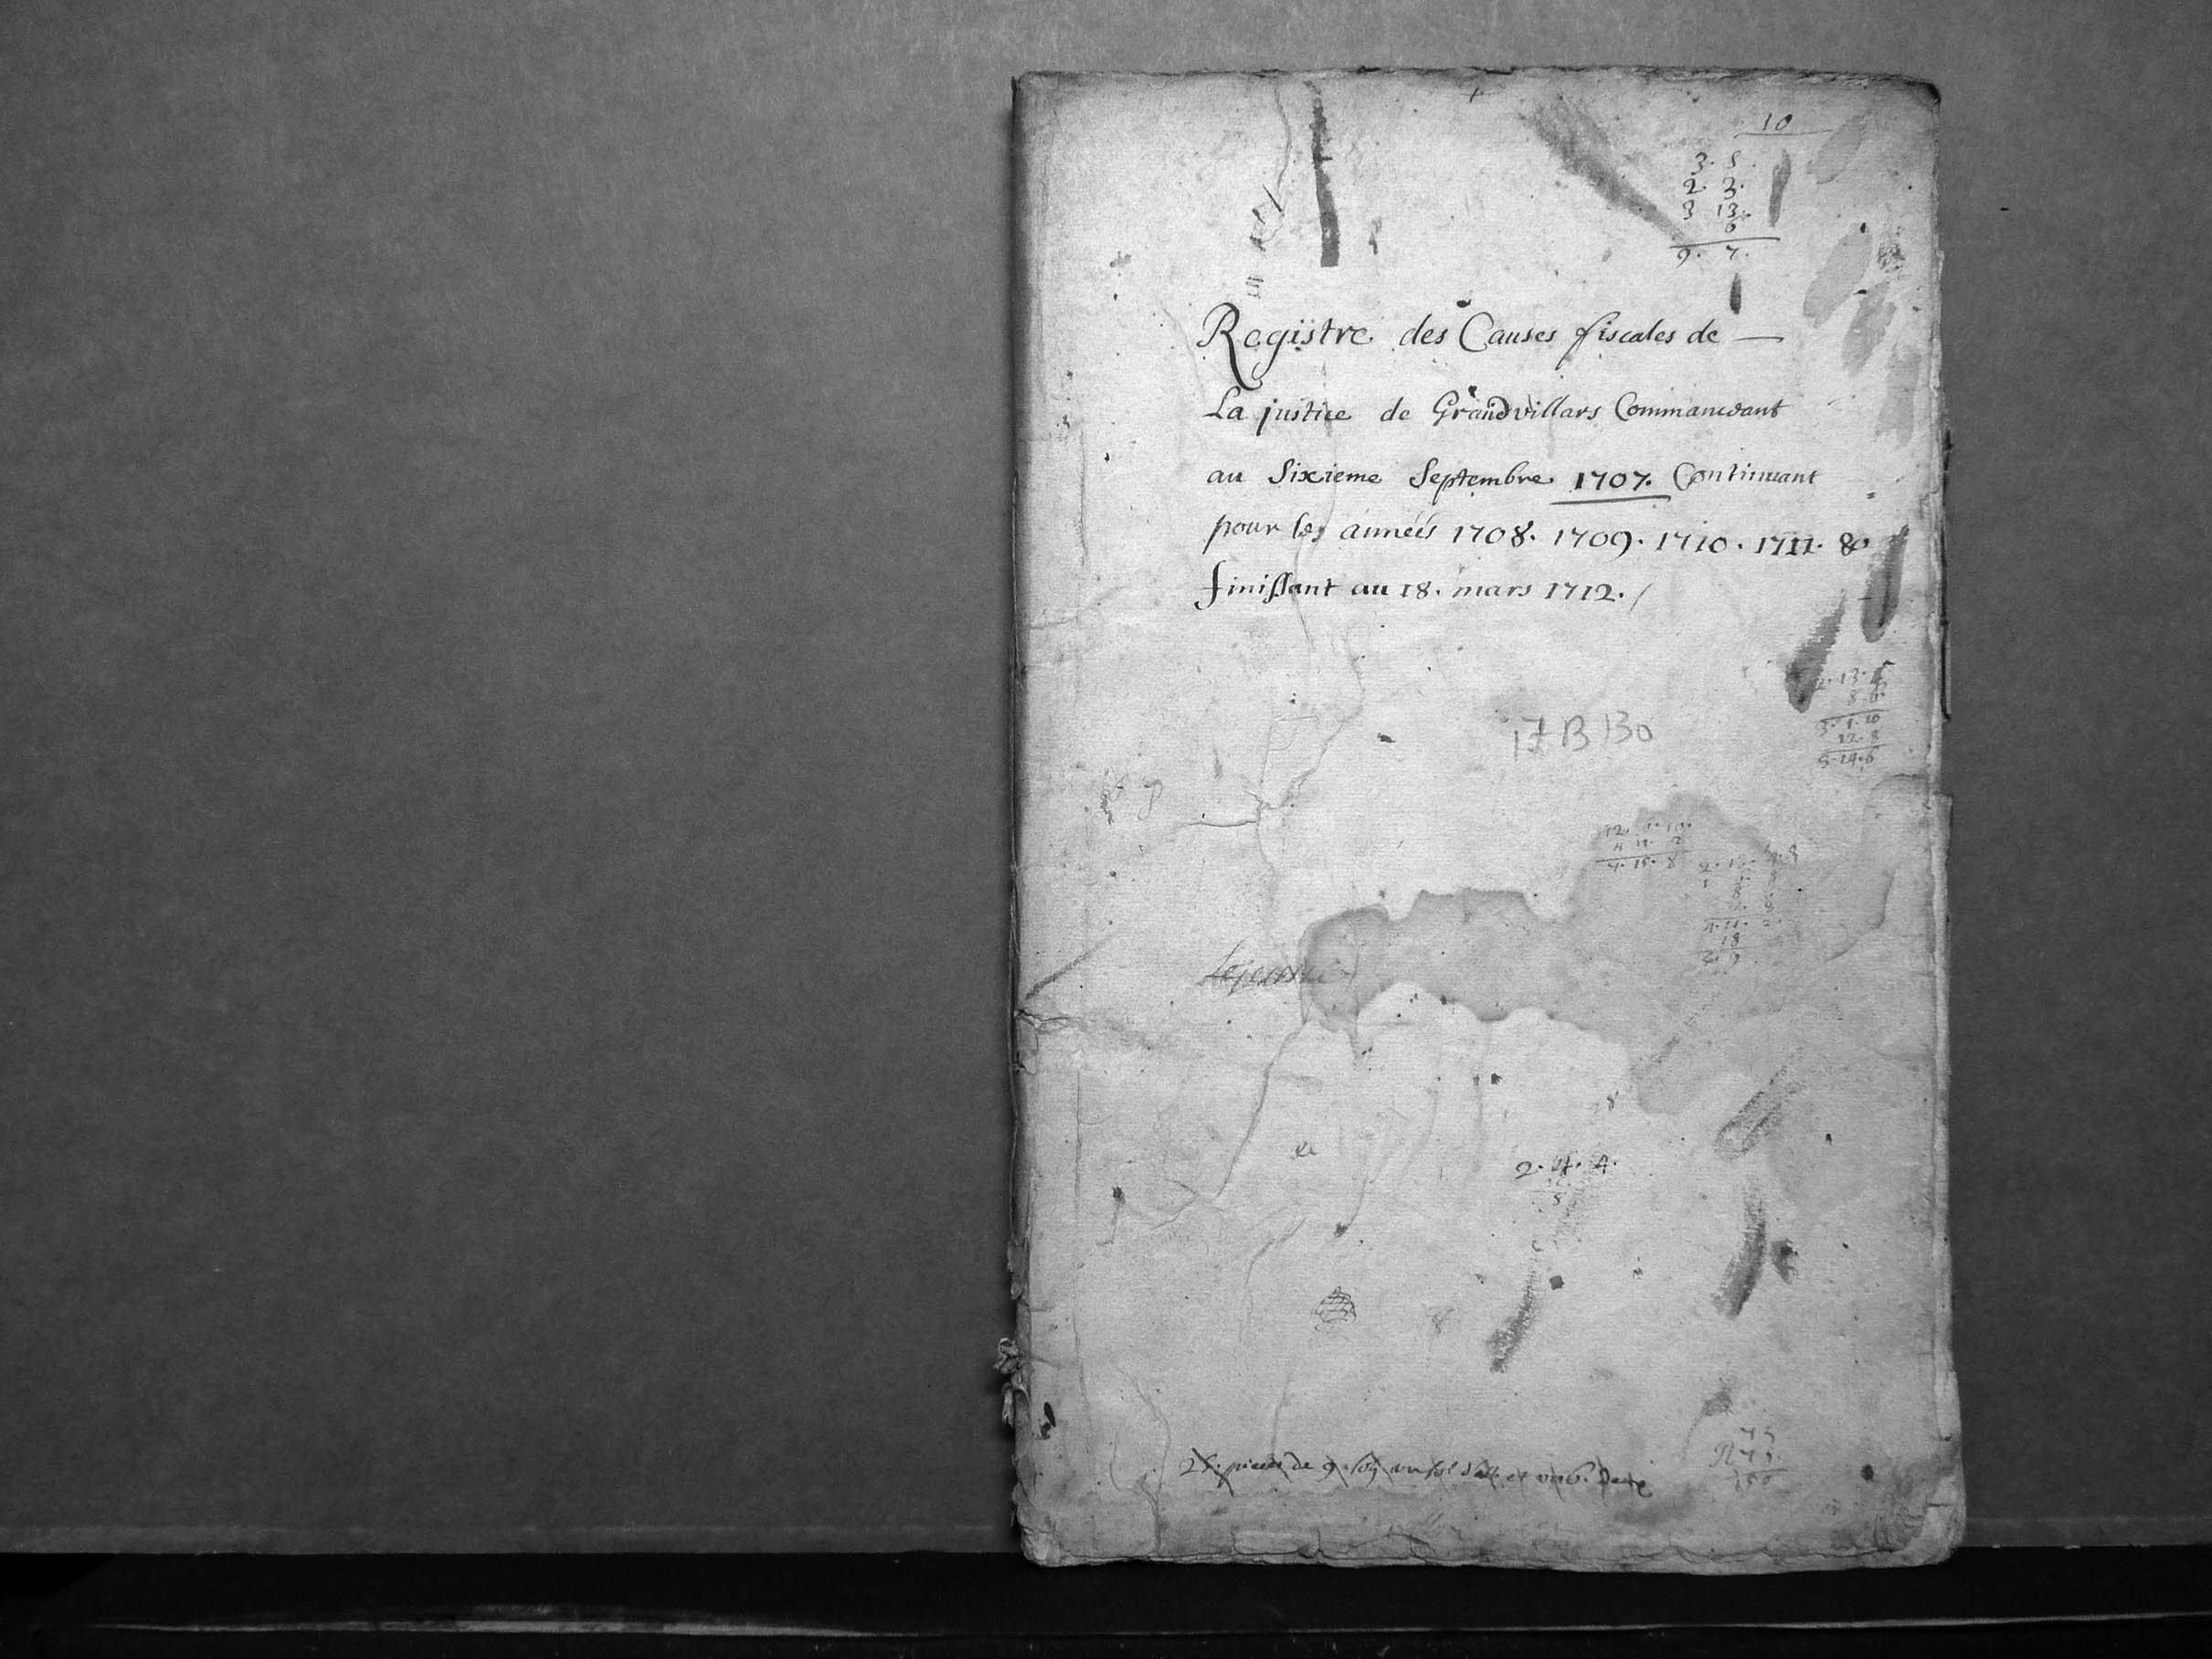 10
3. 5.
2. 3.
3 13.
6
9. 7.
Regïstre des Causes fiscales de —
La justice de Grandvillars Commancant
au Sixieme Septembre 1707. Continuant
pour les années 1708. 1709. 1710. 1711. &
finissant au 18. mars 1712. /
8 6
3. 1. 10
12. 8
5. 14. 6
17 B 130
4. 15. 8
4. 11. 2.
18
28
2. 4.
8
pieces de 9